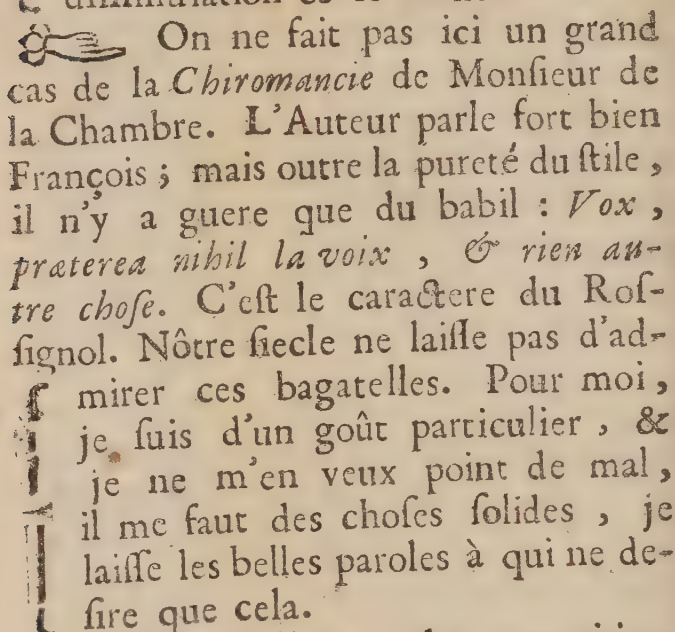 On ne fait pas ici un grand
cas de la Chiromancie de Monſieur de
la Chambre. L'Auteur parle fort bien
François ; mais outre la pureté du ſtile ,
il n'y a guere que du babil : Vox ,
præterea nihil la voix , & rien au-
tre choſe. C'eſt le caractere du Roſ-
ſignol. Nôtre ſiecle ne laiſſe pas d'ad-
mirer ces bagatelles. Pour moi ,
je ſuis d'un goût particulier , &
je ne m'en veux point de mal ,
il me faut des choſes ſolides , je
laiſſe les belles paroles à qui ne de-
ſire que cela.